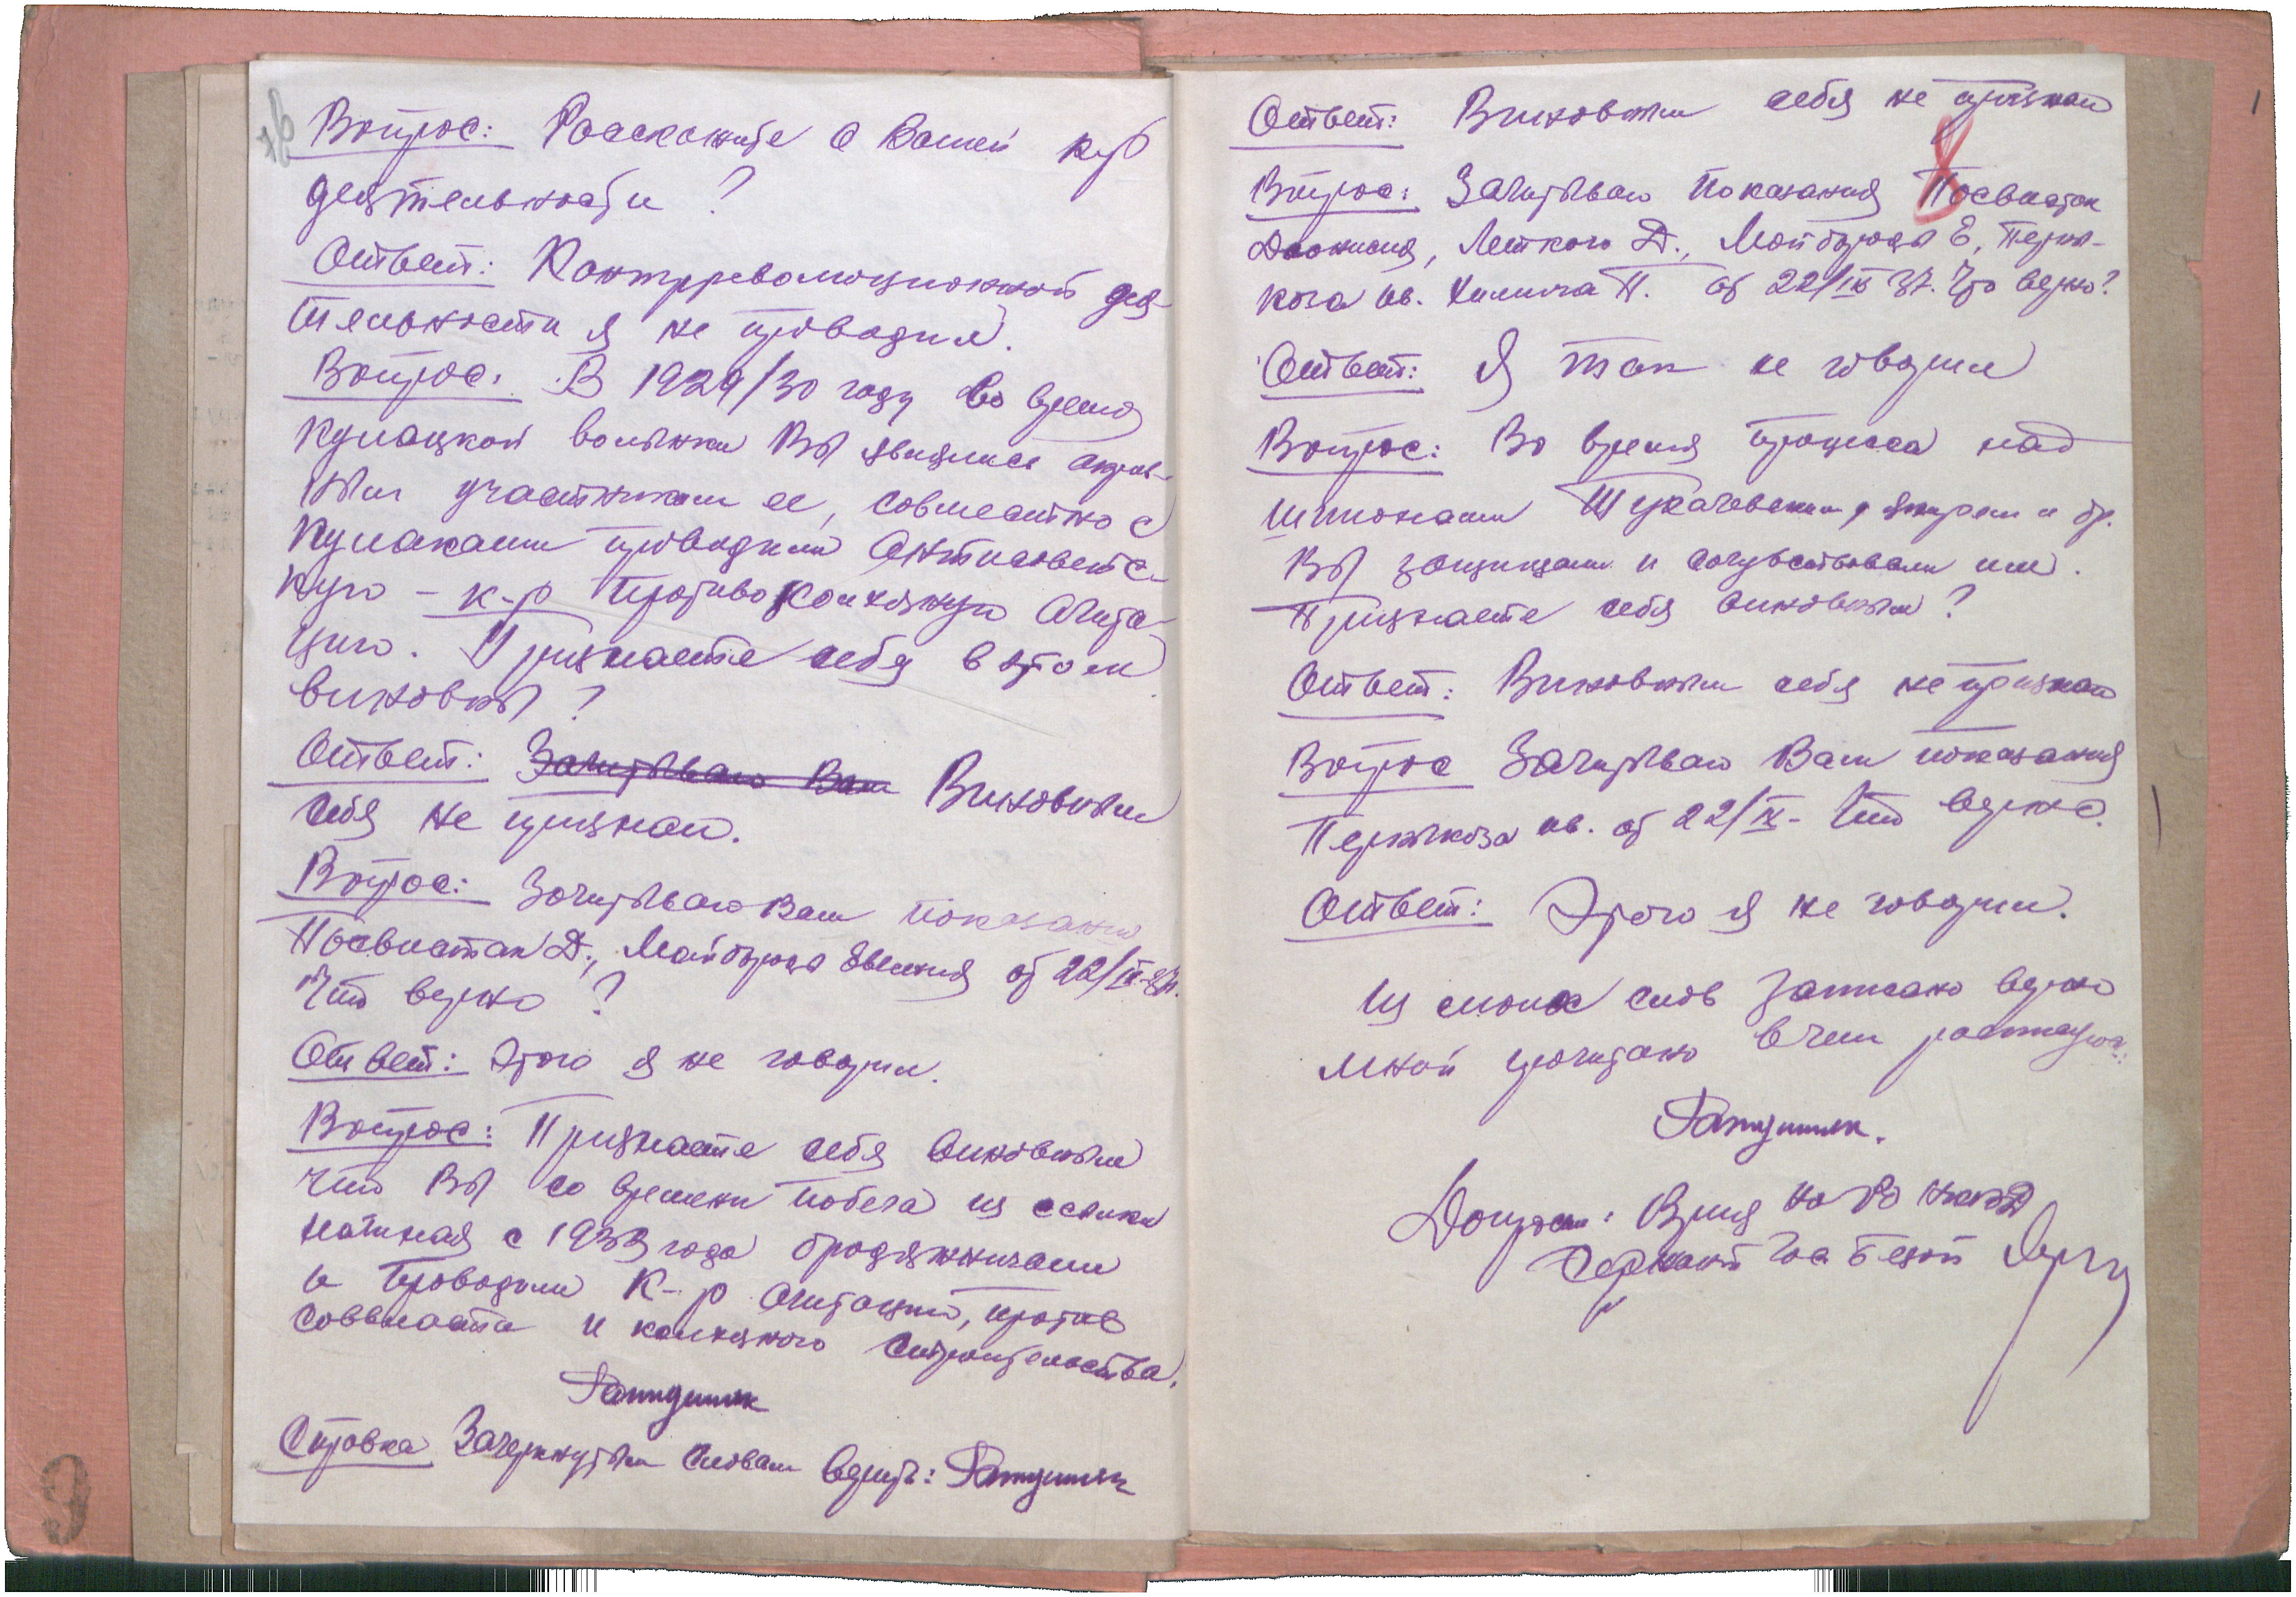 Вопрос: Расскажите о Вашей к-р
деятельности?
Ответ: Контрреволюционной дея-
тельности я не проводил.
Вопрос: В 1929/30 году во время
кулацкой волынки Вы являлись актив-
ным участником ее, совместно с
кулаками проводили антисоветс-
кую - к-р противоколхозную агита-
цию. Признаете себя в этом
виновны?
Ответ: Зачитываю Вам Виновным
себя не признаю.
Вопрос: Зачитываю Вам показания
Посвистак Д., Майбороды Евгения от 22/IX-37.
Что верно?
Ответ: Этого я не говорил.
Вопрос: Признаете себя виновным
что Вы со времени побега из ссылки
начиная с 1933 года бродяжничали
и проводили к-р агитацию, против
соввласти и колхозного строительства.
Справка Зачеркнутым словам верить:
Ответ: Виновным себя не признаю
8
Вопрос: Зачитываю показания Посвистак
Дионисия, Леткого Д., Майбороды Е,
Ив. Химича П. от 22/IX 37. Что верно?
Ответ: Я так не говорил
Вопрос: Во время процесса над
шпионами Тухачевским, Якиром и др.
Вы защищали и сочувствовали им.
Признаете себя виновным?
Ответ: Виновным себя не признаю
Вопрос Зачитываю Вам показания
ив. от 22/IX- Что верно.
Ответ: Этого я не говорил.
Из моих слов записано верно
мной прочитано в чем
Допросил: Врид НКВД
Сержант Гос Безоп
9